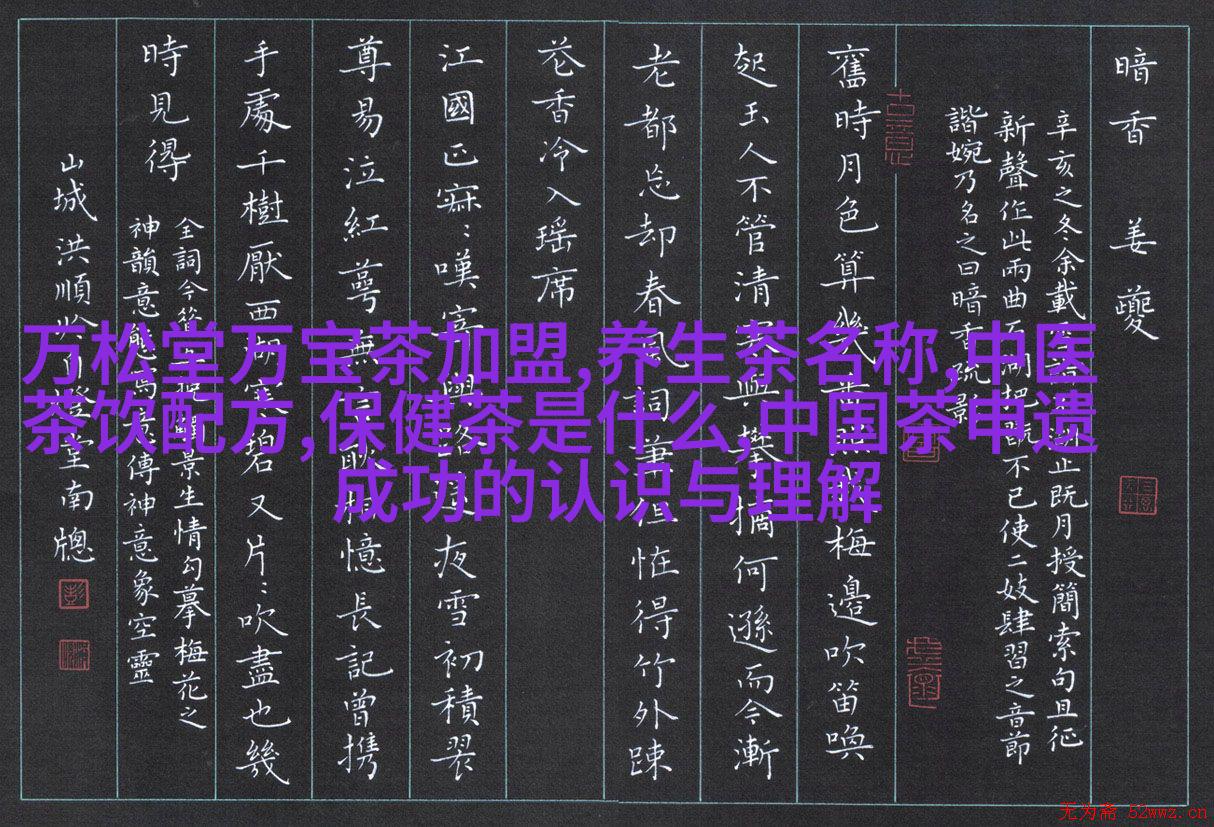 暗香 姜夔
辛亥之冬余載止既月授簡索句且征
新聲作此兩曲石湖把不已使二妓肆習之音節
諧婉乃名之曰暗香疏影
舊時月色算幾梅邊吹笛喚
起玉人不管清寒與攀摘何遜而今漸
老都忘却春風詞筆但恠得竹外踈
花香冷入瑶席
江國正寂：嘆寄與路遥夜雪初積翠
尊易泣紅萼無言耿相憶長記曾携
手處千樹壓西湖寒碧又片：吹盡也幾
時見得
全詞今景生情勾摹梅花之
神韻意態寫傳神意象空靈
山城洪順登堂南牕
万松堂万宝茶加盟,养生茶名称,中医
茶饮配方,保健茶是什么,中国茶申遗
成功的认识与理解
无为斋 52wwz.cn